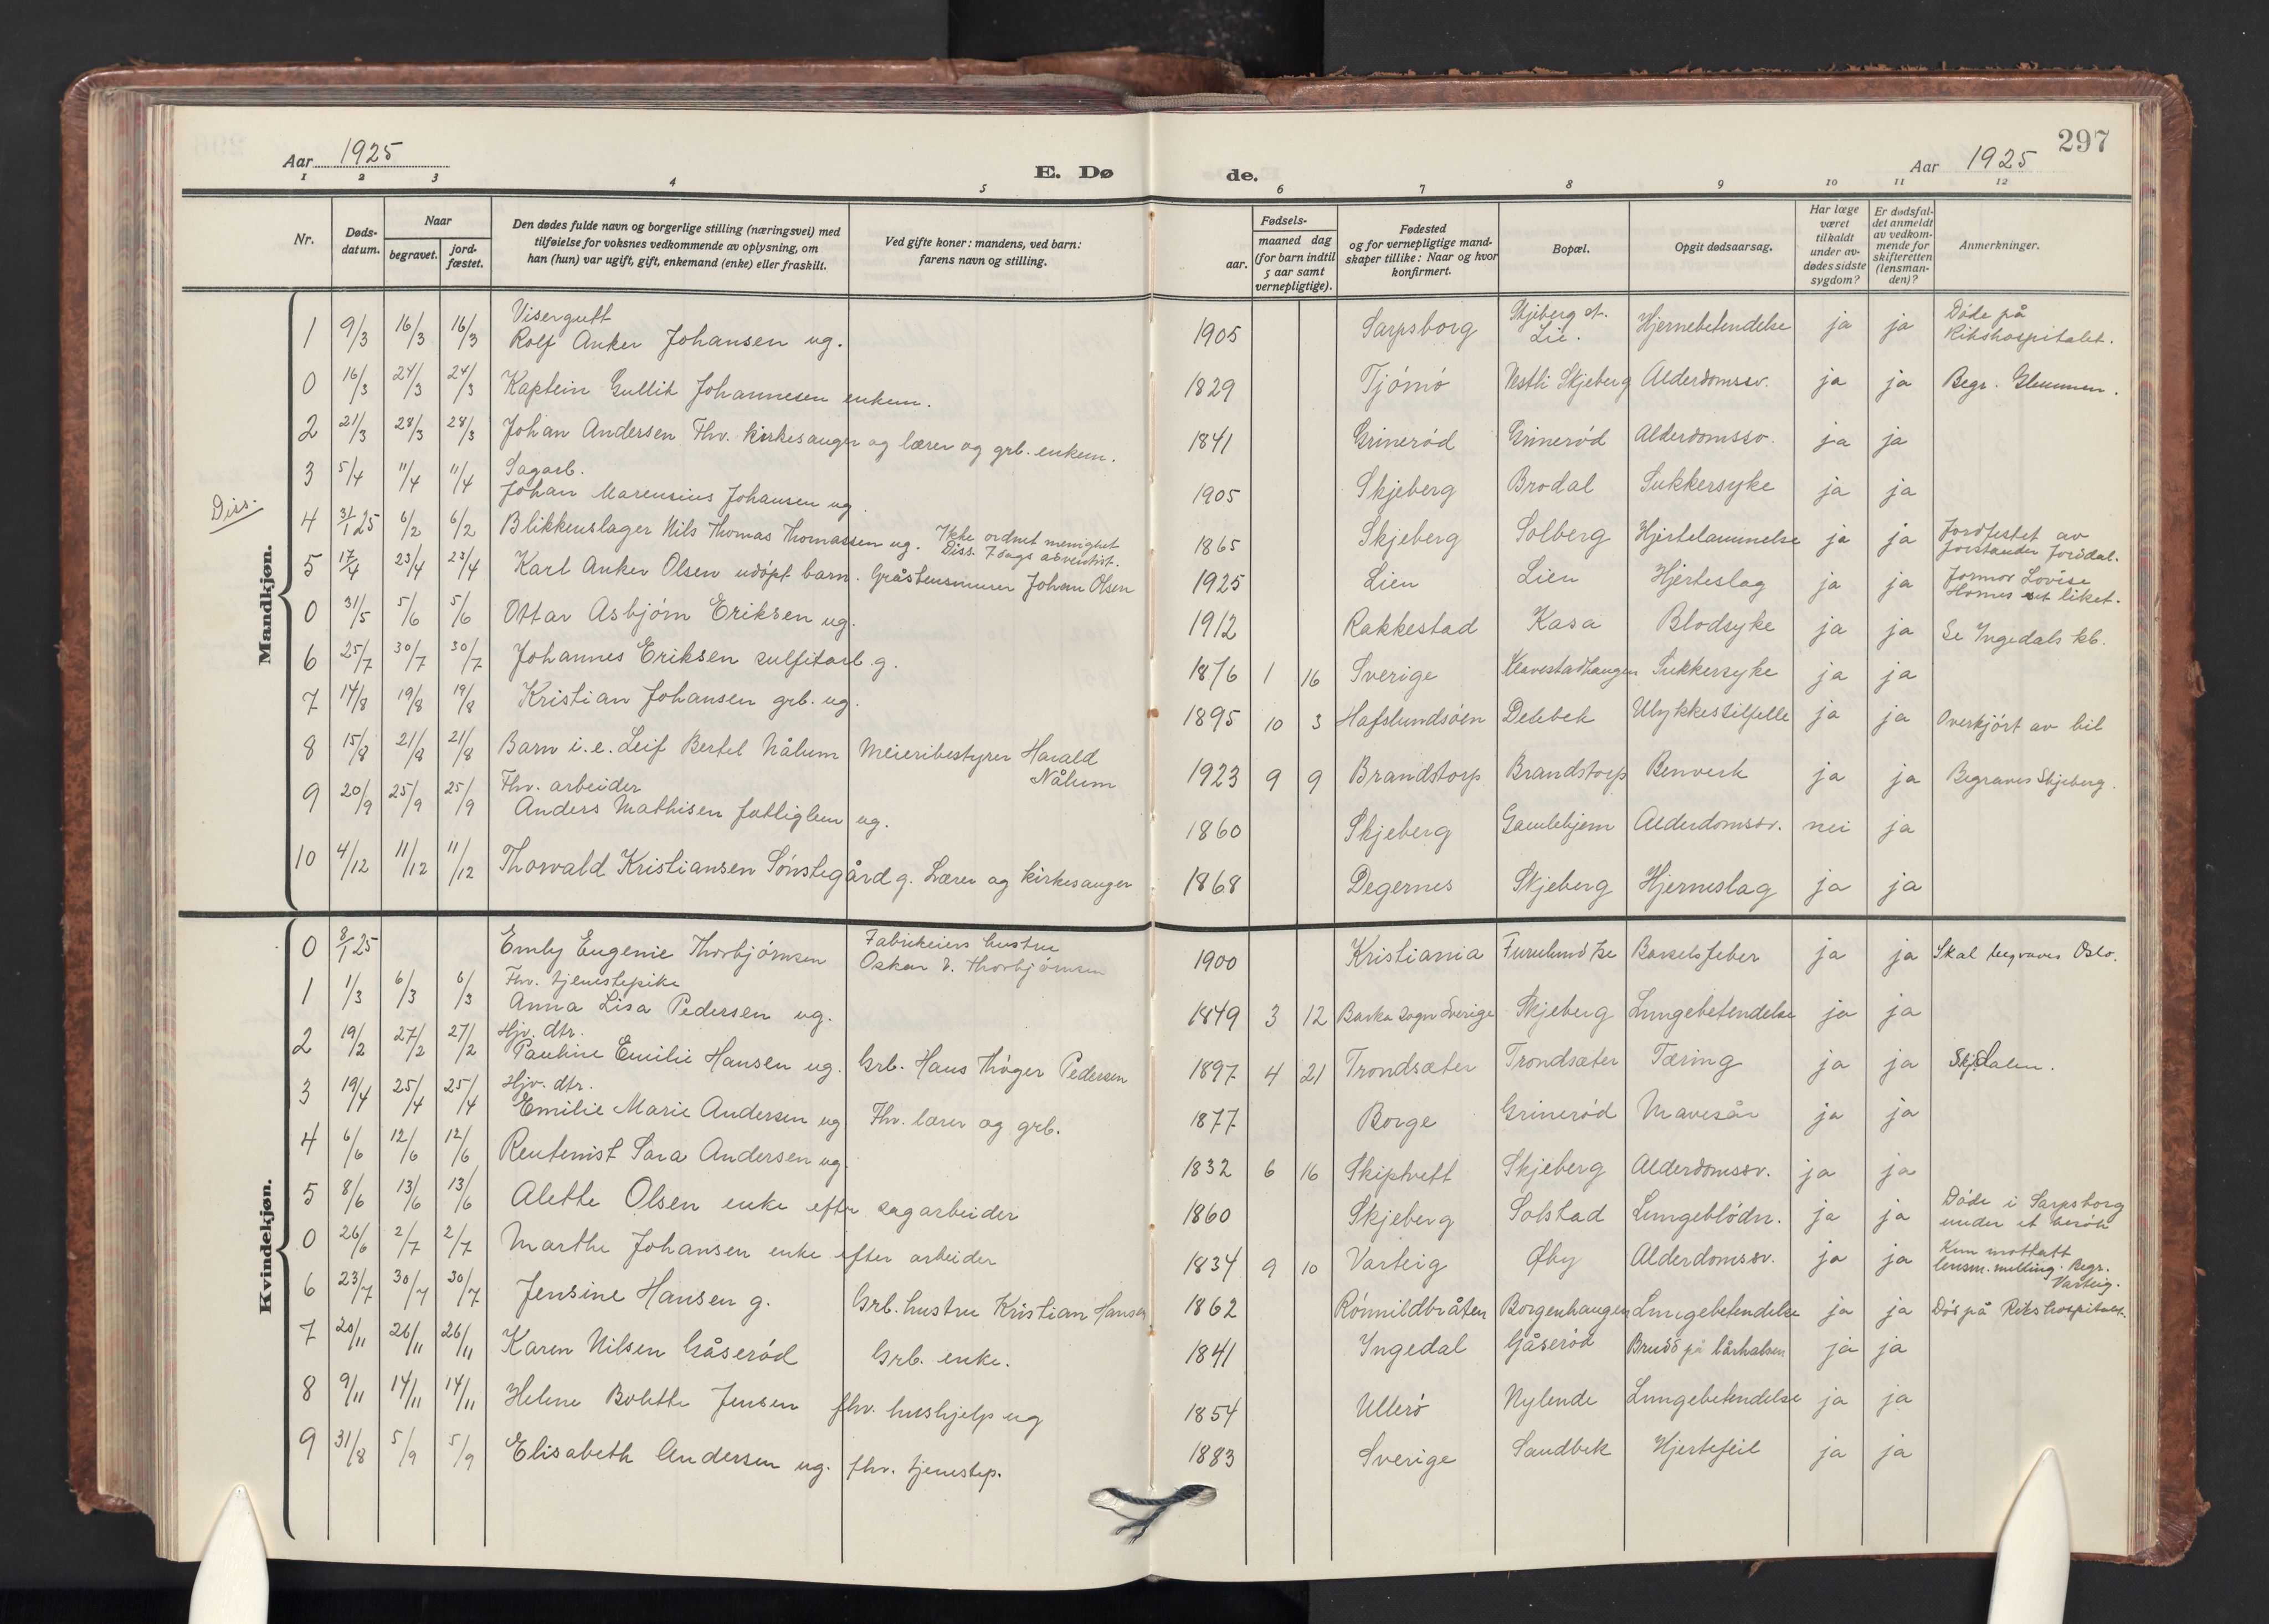 297
Aar 1925
E. Dø
de.
Aar 1925
1 2 3 4 5 6 7 8 9 10 11 12
Nr.
Døds-
datum.
Naar
begravet.
jord-
fæstet.
Den dødes fulde navn og borgerlige stilling (næringsvei) med
tilføielse for voksnes vedkommende av oplysning, om
han (hun) var ugift, gift, enkemand (enke) eller fraskilt.
Ved gifte koner: mandens, ved barn:
farens navn og stilling.
Fødsels-
aar.
maaned dag
(for barn indtil
5 aar samt
vernepligtige).
Fødested
og for vernepligtige mand-
skaper tillike: Naar og hvor
konfirmert.
Bopæl.
Opgit dødsaarsag.
Har læge
været
tilkaldt
under av-
dødes sidste
sygdom?
Er dødsfal-
det anmeldt
av vedkom-
mende for
skifteretten
(lensman-
den)?
Anmerkninger.
Mandkjøn.
1 9/3 16/3 16/3 Visergutt
Rolf Anker Johansen ug. 1905 Sarpsborg Skjeberg st.
Lie. Hjernebetendelse ja ja Døde på
Rikshospitalet.
0 16/3 24/3 24/3 Kaptein Gullik Johannesen enkem. 1829 Tjømø Vestli Skjeberg Alderdomssv. ja ja Begr. Glemmen.
2 21/3 28/3 28/3 Johan Andersen Fhv. kirkesanger og lærer og grb. enkem. 1841 Grinerød Grinerød Alderdomssv. ja ja
3 5/4 11/4 11/4 Sagarb.
Johan Marensius Johansen ug. 1905 Skjeberg Brodal Sukkersyke ja ja
Diss.
4 31/1 25 6/2 6/2 Blikkenslager Nils Thomas Thomassen ug. Ikke ordnet menighet
Diss. 7 dags adventist. 1865 Skjeberg Solberg Hjertelammelse ja ja Jordfestet av
forstander Jordal.
5 17/4 23/4 23/4 Karl Anker Olsen udøpt barn. Gråstensmurer Johan Olsen 1925 Lien Lien Hjerteslag ja ja Formor Lovise
Hornes set liket.
0 31/5 5/6 5/6 Ottar Asbjørn Eriksen ug. 1912 Rakkestad Kasa Blodsyke ja ja Se Ingedals kb.
6 25/7 30/7 30/7 Johannes Eriksen sulfitarb. g. 1876 1 16 Sverige Klavestadhaugen Sukkersyke ja ja
7 14/8 19/8 19/8 Kristian Johansen grb. ug. 1895 10 3 Hafslundsøen Delebek Ulykkestilfelle ja ja Overkjørt av bil
8 15/8 21/8 21/8 Barn i.e. Leif Bertel Nålum Meieribestyrer Harald
Nålum 1923 9 9 Brandstorp Brandstorp Benverk ja ja Begraves Skjeberg.
9 20/9 25/9 25/9 Fhv. arbeider
Anders Mathisen fattiglem ug. 1860 Skjeberg Gamlehjem Alderdomssv. nei ja
10 4/12 11/12 11/12 Thorvald Kristiansen Sønstegård g. Lærer og kirkesanger 1868 Degernes Skjeberg Hjerneslag ja ja
Kvindekjøn.
0 8/1 25 Emby Eugenie Thorbjørnsen Fabrikeiers hustru
Oskar V. Thorbjørnsen 1900 Kristiania Furulund Barselsfeber ja ja Skal begraves Oslo.
1 1/3 6/3 6/3 Fhv. tjenestepike
Anna Lisa Pedersen ug. 1849 3 12 Backa sogn Sverige Skjeberg Lungebetendelse ja ja
2 19/2 27/2 27/2 Hjv. dtr.
Pauline Emilie Hansen ug. Grb. Hans Thøger Pedersen 1897 4 21 Trondsæter Trondsæter Tæring ja ja Skjdalen.
3 19/4 25/4 25/4 Hjv. dtr.
Emilie Marie Andersen ug Fhv. lærer og grb. 1877 Borge Grinerød Mavesår ja ja
4 6/6 12/6 12/6 Rentenist Sara Andersen ug. 1832 6 16 Skiptvett Skjeberg Alderdomssv. ja ja
5 8/6 13/6 13/6 Alette Olsen enke efter sagarbeider 1860 Skjeberg Solstad Lungeblødn. ja ja Døde i Sarpsborg
under et besøk
0 26/6 2/7 2/7 Marthe Johansen enke efter arbeider 1834 9 10 Varteig Øby Alderdomssv. ja ja Kun mottatt
lensm. melding. Begr.
Varteig.
6 23/7 30/7 30/7 Jensine Hansen g. Grb. hustru Kristian Hansen 1862 Rønnildbråten Borgenhaugen Lungebetendelse ja ja Død på Rikshospitalet.
7 20/11 26/11 26/11 Karen Nilsen Gåserød Grb. enke. 1841 Ingedal Gåserød Brudd på lårhalsen ja ja
8 9/11 14/11 14/11 Helene Bolette Jensen fhv. hushjelp ug 1854 Ullerø Nylende Lungebetendelse ja ja
9 31/8 5/9 5/9 Elisabeth Andersen ug. fhv. tjenestep. 1883 Sverige Sandbek Hjertefeil ja ja